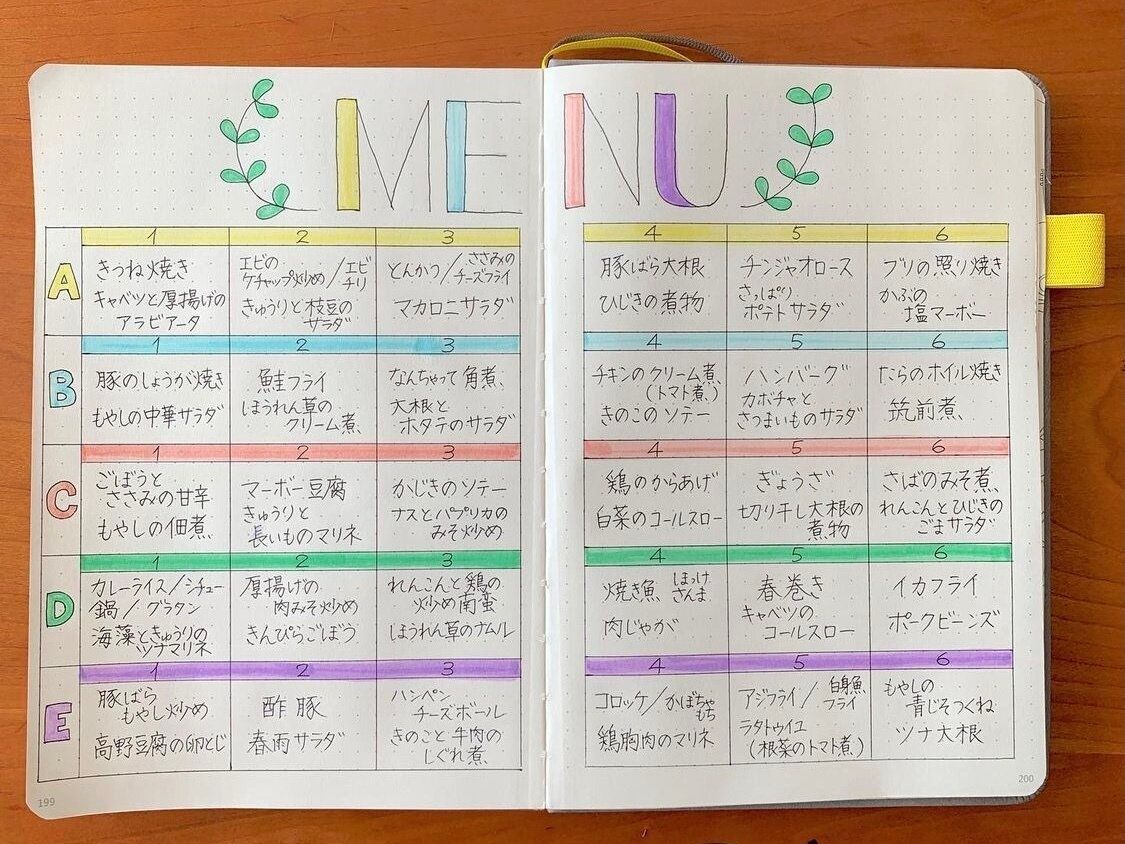 MENU
1 2 3 4 5 6
A
きつね焼き
キャベツと厚揚げの
アラビアータ
エビの
ケチャップ炒め/エビ
チリ
きゅうりと枝豆の
サラダ
とんかつ/ささみの
チーズフライ
マカロニサラダ
豚ばら大根
ひじきの煮物
チンジャオロース
さっぱり
ポテトサラダ
ブリの照り焼き
かぶの
塩マーボー
1 2 3 4 5 6
B
豚のしょうが焼き
もやしの中華サラダ
鮭フライ
ほうれん草の
クリーム煮
なんちゃって角煮
大根と
ホタテのサラダ
チキンのクリーム煮
(トマト煮)
きのこのソテー
ハンバーグ
カボチャと
さつまいものサラダ
たらのホイル焼き
筑前煮
1 2 3 4 5 6
C
ごぼうと
ささみの甘辛
もやしの佃煮
マーボー豆腐
きゅうりと
長いものマリネ
かじきのソテー
ナスとパプリカの
みそ炒め
鶏のからあげ
白菜のコールスロー
ぎょうざ
切り干し大根の
煮物
さばのみそ煮
れんこんとひじきの
ごまサラダ
1 2 3 4 5 6
D
カレーライス/シチュー
鍋/グラタン
海藻ときゅうりの
ツナマリネ
厚揚げの
肉みそ炒め
きんぴらごぼう
れんこんと鶏の
炒め南蛮
ほうれん草のナムル
焼き魚 ほっけ
さんま
肉じゃが
春巻き
キャベツの
コールスロー
イカフライ
ポークビーンズ
1 2 3 4 5 6
E
豚ばら
もやし炒め
高野豆腐の卵とじ
酢豚
春雨サラダ
ハンペン
チーズボール
きのこと牛肉の
しぐれ煮
コロッケ/かぼちゃ
もち
鶏胸肉のマリネ
アジフライ/白身魚
フライ
ラタトゥイユ
(根菜のトマト煮)
もやしの
青じそつくね
ツナ大根
199
200